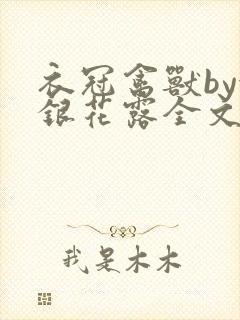 衣冠禽獸by
銀花露全文
我是木木